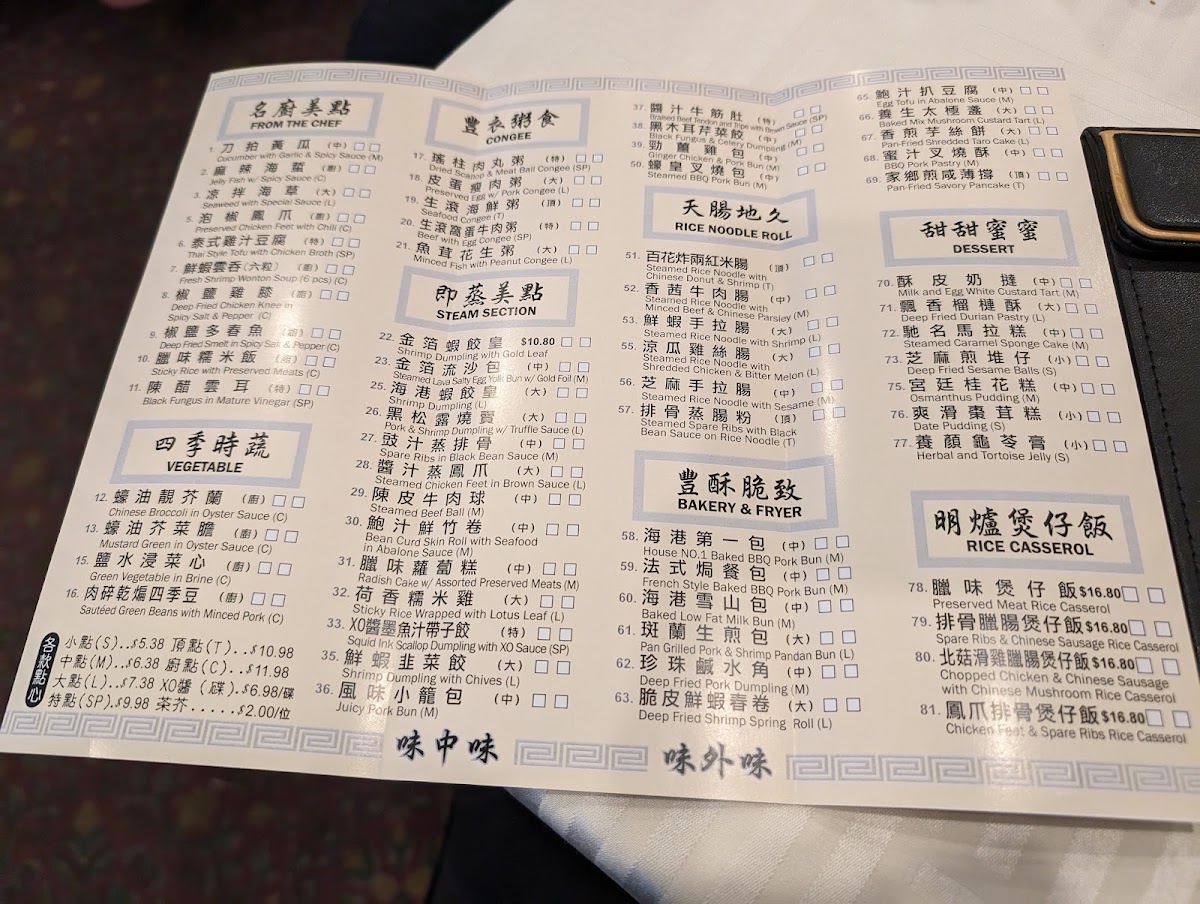 名廚美點
FROM THE CHEF
1. 刀拍黃瓜 (中)
Cucumber with Garlic & Spicy Sauce (M)
2. 麻辣海蜇 (廚)
Jelly Fish w/ Spicy Sauce (C)
3. 凉拌海草 (大)
Seaweed with Special Sauce (L)
5. 泡椒鳳爪 (廚)
Preserved Chicken Feet with Chili (C)
6. 泰式雞汁豆腐 (特)
Thai Style Tofu with Chicken Broth (SP)
7. 鮮蝦雲吞(六粒) (廚)
Fresh Shrimp Wonton Soup (6 pcs) (C)
8. 椒鹽雞膝 (廚)
Deep Fried Chicken Knee in
Spicy Salt & Pepper (C)
9. 椒鹽多春魚 (廚)
Deep Fried Smelt in Spicy Salt & Pepper (C)
10. 臘味糯米飯 (廚)
Sticky Rice with Preserved Meats (C)
11. 陳醋雲耳 (特)
Black Fungus in Mature Vinegar (SP)
四季時蔬
VEGETABLE
12. 蠔油靚芥蘭 (廚)
Chinese Broccoli in Oyster Sauce (C)
13. 蠔油芥菜膽 (廚)
Mustard Green in Oyster Sauce (C)
15. 鹽水浸菜心 (廚)
Green Vegetable in Brine (C)
16. 肉碎乾煸四季豆 (廚)
Sautéed Green Beans with Minced Pork (C)
各款點心
小點(S)..$5.38 頂點(T)...$10.98
中點(M)..$6.38 廚點(C)...$11.98
大點(L)..$7.38 XO醬(碟).$6.98/碟
特點(SP).$9.98 茶芥.....$2.00/位
豐衣粥食
CONGEE
17. 瑤柱肉丸粥 (特)
Dried Scallop & Meat Ball Congee (SP)
18. 皮蛋瘦肉粥 (大)
Preserved Egg w/ Pork Congee (L)
19. 生滾海鮮粥 (頂)
Seafood Congee (T)
20. 生滾窩蛋牛肉粥 (特)
Beef with Egg Congee (SP)
21. 魚茸花生粥 (大)
Minced Fish with Peanut Congee (L)
即蒸美點
STEAM SECTION
22. 金箔蝦餃皇 $10.80
Shrimp Dumpling with Gold Leaf
23. 金箔流沙包 (中)
Steamed Lava Salty Egg Yolk Bun w/ Gold Foil (M)
25. 海港蝦餃皇 (大)
Shrimp Dumpling (L)
26. 黑松露燒賣 (大)
Pork & Shrimp Dumpling w/ Truffle Sauce (L)
27. 豉汁蒸排骨 (中)
Spare Ribs in Black Bean Sauce (M)
28. 醬汁蒸鳳爪 (大)
Steamed Chicken Feet in Brown Sauce (L)
29. 陳皮牛肉球 (中)
Steamed Beef Ball (M)
30. 鮑汁鮮竹卷 (中)
Bean Curd Skin Roll with Seafood
in Abalone Sauce (M)
31. 臘味蘿蔔糕 (中)
Radish Cake w/ Assorted Preserved Meats (M)
32. 荷香糯米雞 (大)
Sticky Rice Wrapped with Lotus Leaf (L)
33. XO醬墨魚汁帶子餃 (特)
Squid Ink Scallop Dumpling with XO Sauce (SP)
35. 鮮蝦韭菜餃 (大)
Shrimp Dumpling with Chives (L)
36. 風味小籠包 (中)
Juicy Pork Bun (M)
37. 醬汁牛筋肚 (特)
Braised Beef Tendon and Tripe with Brown Sauce (SP)
38. 黑木耳芹菜餃 (中)
Black Fungus & Celery Dumpling (M)
39. 勁薑雞包 (中)
Ginger Chicken & Pork Bun (M)
50. 蠔皇叉燒包 (中)
Steamed BBQ Pork Bun (M)
天腸地久
RICE NOODLE ROLL
51. 百花炸兩紅米腸 (頂)
Steamed Rice Noodle with
Chinese Donut & Shrimp (T)
52. 香茜牛肉腸 (中)
Steamed Rice Noodle with
Minced Beef & Chinese Parsley (M)
53. 鮮蝦手拉腸 (大)
Steamed Rice Noodle with Shrimp (L)
55. 涼瓜雞絲腸 (大)
Steamed Rice Noodle with
Shredded Chicken & Bitter Melon (L)
56. 芝麻手拉腸 (中)
Steamed Rice Noodle with Sesame (M)
57. 排骨蒸腸粉 (頂)
Steamed Spare Ribs with Black
Bean Sauce on Rice Noodle (T)
豐酥脆致
BAKERY & FRYER
58. 海港第一包 (中)
House NO.1 Baked BBQ Pork Bun (M)
59. 法式焗餐包 (中)
French Style Baked BBQ Pork Bun (M)
60. 海港雪山包 (中)
Baked Low Fat Milk Bun (M)
61. 斑蘭生煎包 (大)
Pan Grilled Pork & Shrimp Pandan Bun (L)
62. 珍珠鹹水角 (中)
Deep Fried Pork Dumpling (M)
63. 脆皮鮮蝦春卷 (大)
Deep Fried Shrimp Spring Roll (L)
65. 鮑汁扒豆腐 (中)
Egg Tofu in Abalone Sauce (M)
66. 養生太極盞 (大)
Baked Mix Mushroom Custard Tart (L)
67. 香煎芋絲餅 (大)
Pan-Fried Shredded Taro Cake (L)
68. 蜜汁叉燒酥 (中)
BBQ Pork Pastry (M)
69. 家鄉煎咸薄撐 (頂)
Pan-Fried Savory Pancake (T)
甜甜蜜蜜
DESSERT
70. 酥皮奶撻 (中)
Milk and Egg White Custard Tart (M)
71. 飄香榴槤酥 (大)
Deep Fried Durian Pastry (L)
72. 馳名馬拉糕 (中)
Steamed Caramel Sponge Cake (M)
73. 芝麻煎堆仔 (小)
Deep Fried Sesame Balls (S)
75. 宮廷桂花糕 (中)
Osmanthus Pudding (M)
76. 爽滑棗茸糕 (小)
Date Pudding (S)
77. 養顏龜苓膏 (小)
Herbal and Tortoise Jelly (S)
明爐煲仔飯
RICE CASSEROL
78. 臘味煲仔飯 $16.80
Preserved Meat Rice Casserol
79. 排骨臘腸煲仔飯 $16.80
Spare Ribs & Chinese Sausage Rice Casserol
80. 北菇滑雞臘腸煲仔飯 $16.80
Chopped Chicken & Chinese Sausage
with Chinese Mushroom Rice Casserol
81. 鳳爪排骨煲仔飯 $16.80
Chicken Feat & Spare Ribs Rice Casserol
味中味 味外味